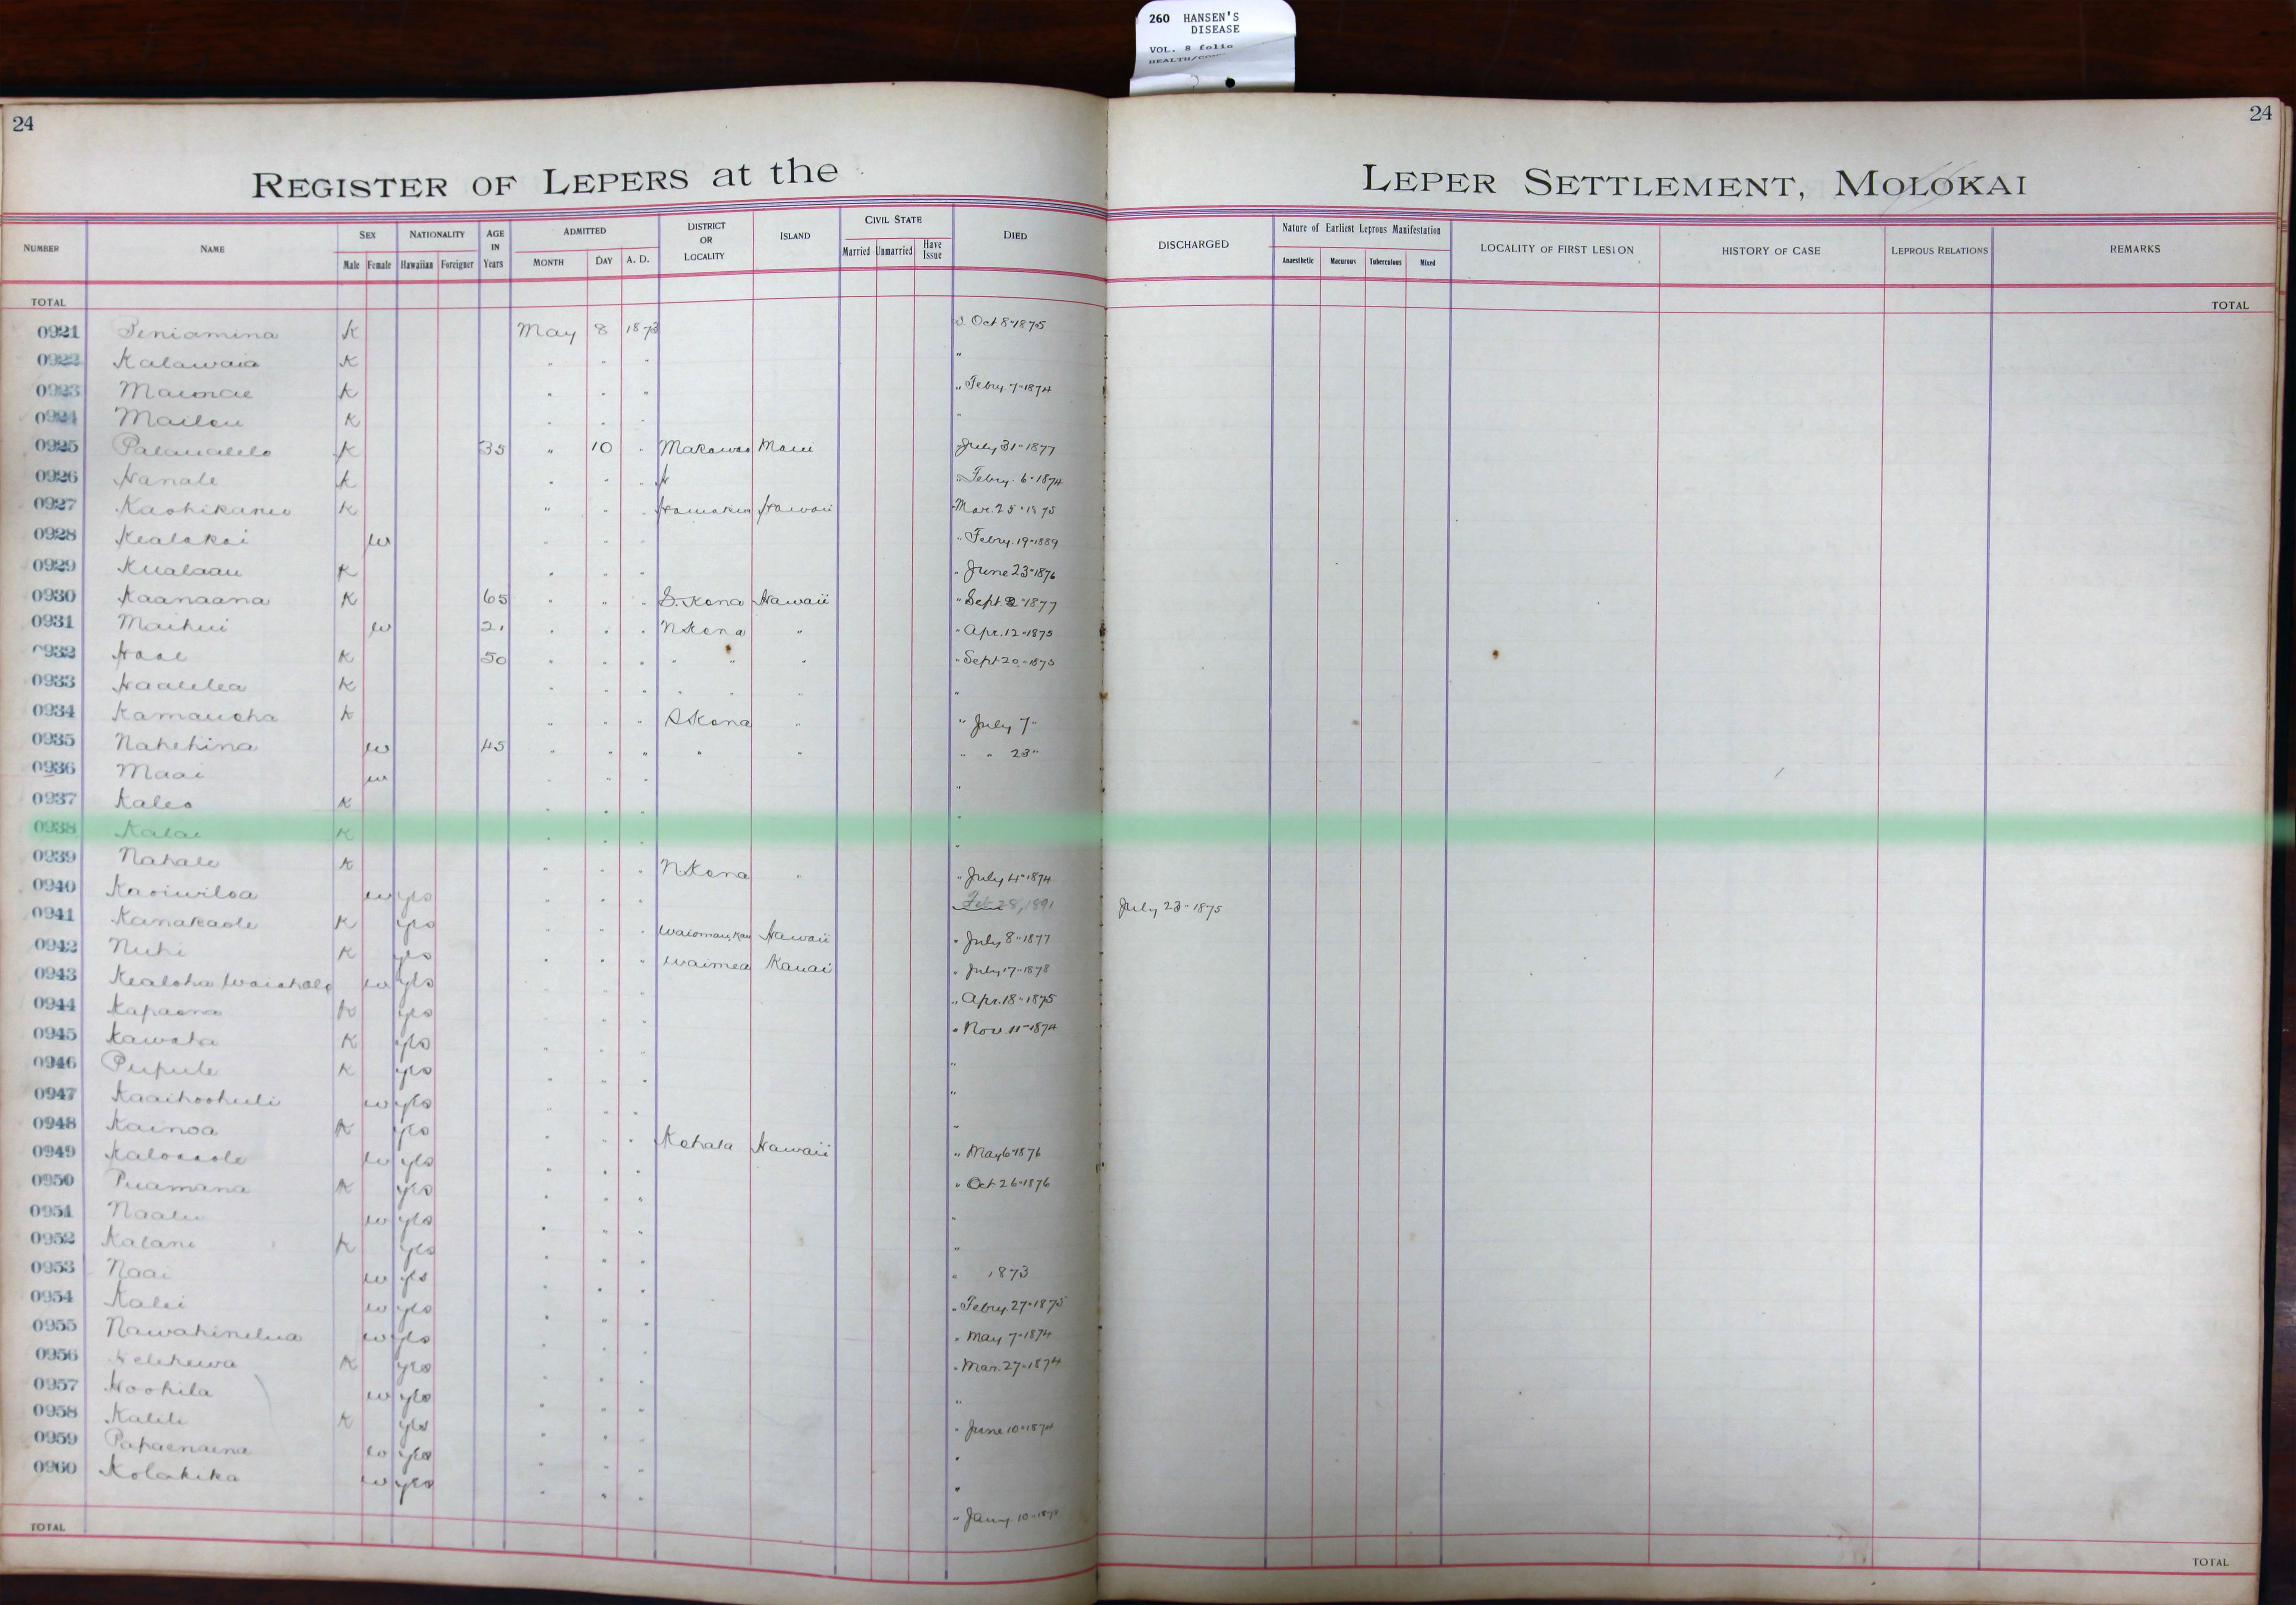 260 HANSEN'S
DISEASE
VOL. 8 folio
24
24
REGISTER OF LEPERS at the LEPER SETTLEMENT, MOLOKAI
NUMBER NAME SEX NATIONALITY AGE IN Years ADMITTED DISTRICT OR LOCALITY ISLAND CIVIL STATE DIED DISCHARGED Nature of Earliest Leprous Manifestation LOCALITY OF FIRST LESION HISTORY OF CASE LEPROUS RELATIONS REMARKS
Male Female Hawaiian Foreigner MONTH DAY A. D. Married Unmarried Have Issue Anaesthetic Macurous Tuberculous Mixed
TOTAL TOTAL
0921 Peniamina K May 8 1873 Oct 8 " 1875
0922 Kalawaia K " " " "
0923 K " " " " Febry. 7 " 1874
0924 K " " " "
0925 K 35 " 10 " Makawao Maui July 31 " 1877
0926 Hanale K " " " H " Febry. 6 " 1874
0927 K " " " Hamakua Hawaii Mar. 25 " 1875
0928 Kealakai w " " " " Febry. 19 " 1889
0929 Kualaau K " " " " June 23 " 1876
0930 Kaanaana K 65 " " " S. Kona Hawaii " Sept 2 " 1877
0931 Maihui w 21 " " " N Kona " " Apr. 12 " 1875
0932 K 50 " " " " " " " Sept 20 " 1875
0933 Haalelea K " " " " " " "
0934 Kamauoha K " " " S Kona " " July 7 "
0935 Nahehina w 45 " " " " " " " 23 "
0936 Maai w " " " "
0937 Kaleo K " " " "
0938 Kalae K " " " "
0939 Nahale K " " " N Kona " " July 4 " 1874
0940 Kaoiwiloa w yes " " " Feb 28, 1891 July 23 " 1875
0941 Kanakaole K yes " " " Hawaii " July 8 " 1877
0942 Nuhi K yes " " " Waimea Kauai " July 17 " 1878
0943 Kealoha w yes " " " " Apr. 18 " 1875
0944 Kapaona K yes " " " " Nov. 11 " 1874
0945 Kawaha K yes " " " "
0946 Pupule K yes " " " "
0947 Kaaihoohuli w yes " " " "
0948 Kainoa K yes " " " Kohala Hawaii " May 6 " 1876
0949 w yes " " " " Oct 26 " 1876
0950 Puamana K yes " " " "
0951 Naalu w yes " " " "
0952 Kalani K yes " " " " 1873
0953 Naai w yes " " " " Febry. 27 " 1875
0954 Kalei w yes " " " " May 7 " 1874
0955 Nawahinelua w yes " " " " Mar. 27 " 1874
0956 Kelehewa K yes " " " "
0957 Hoohila w yes " " " " June 10 " 1874
0958 Kalili K yes " " " "
0959 Papaenaena w yes " " " "
0960 Kolakika w yes " " " " Jany. 10 "
TOTAL TOTAL